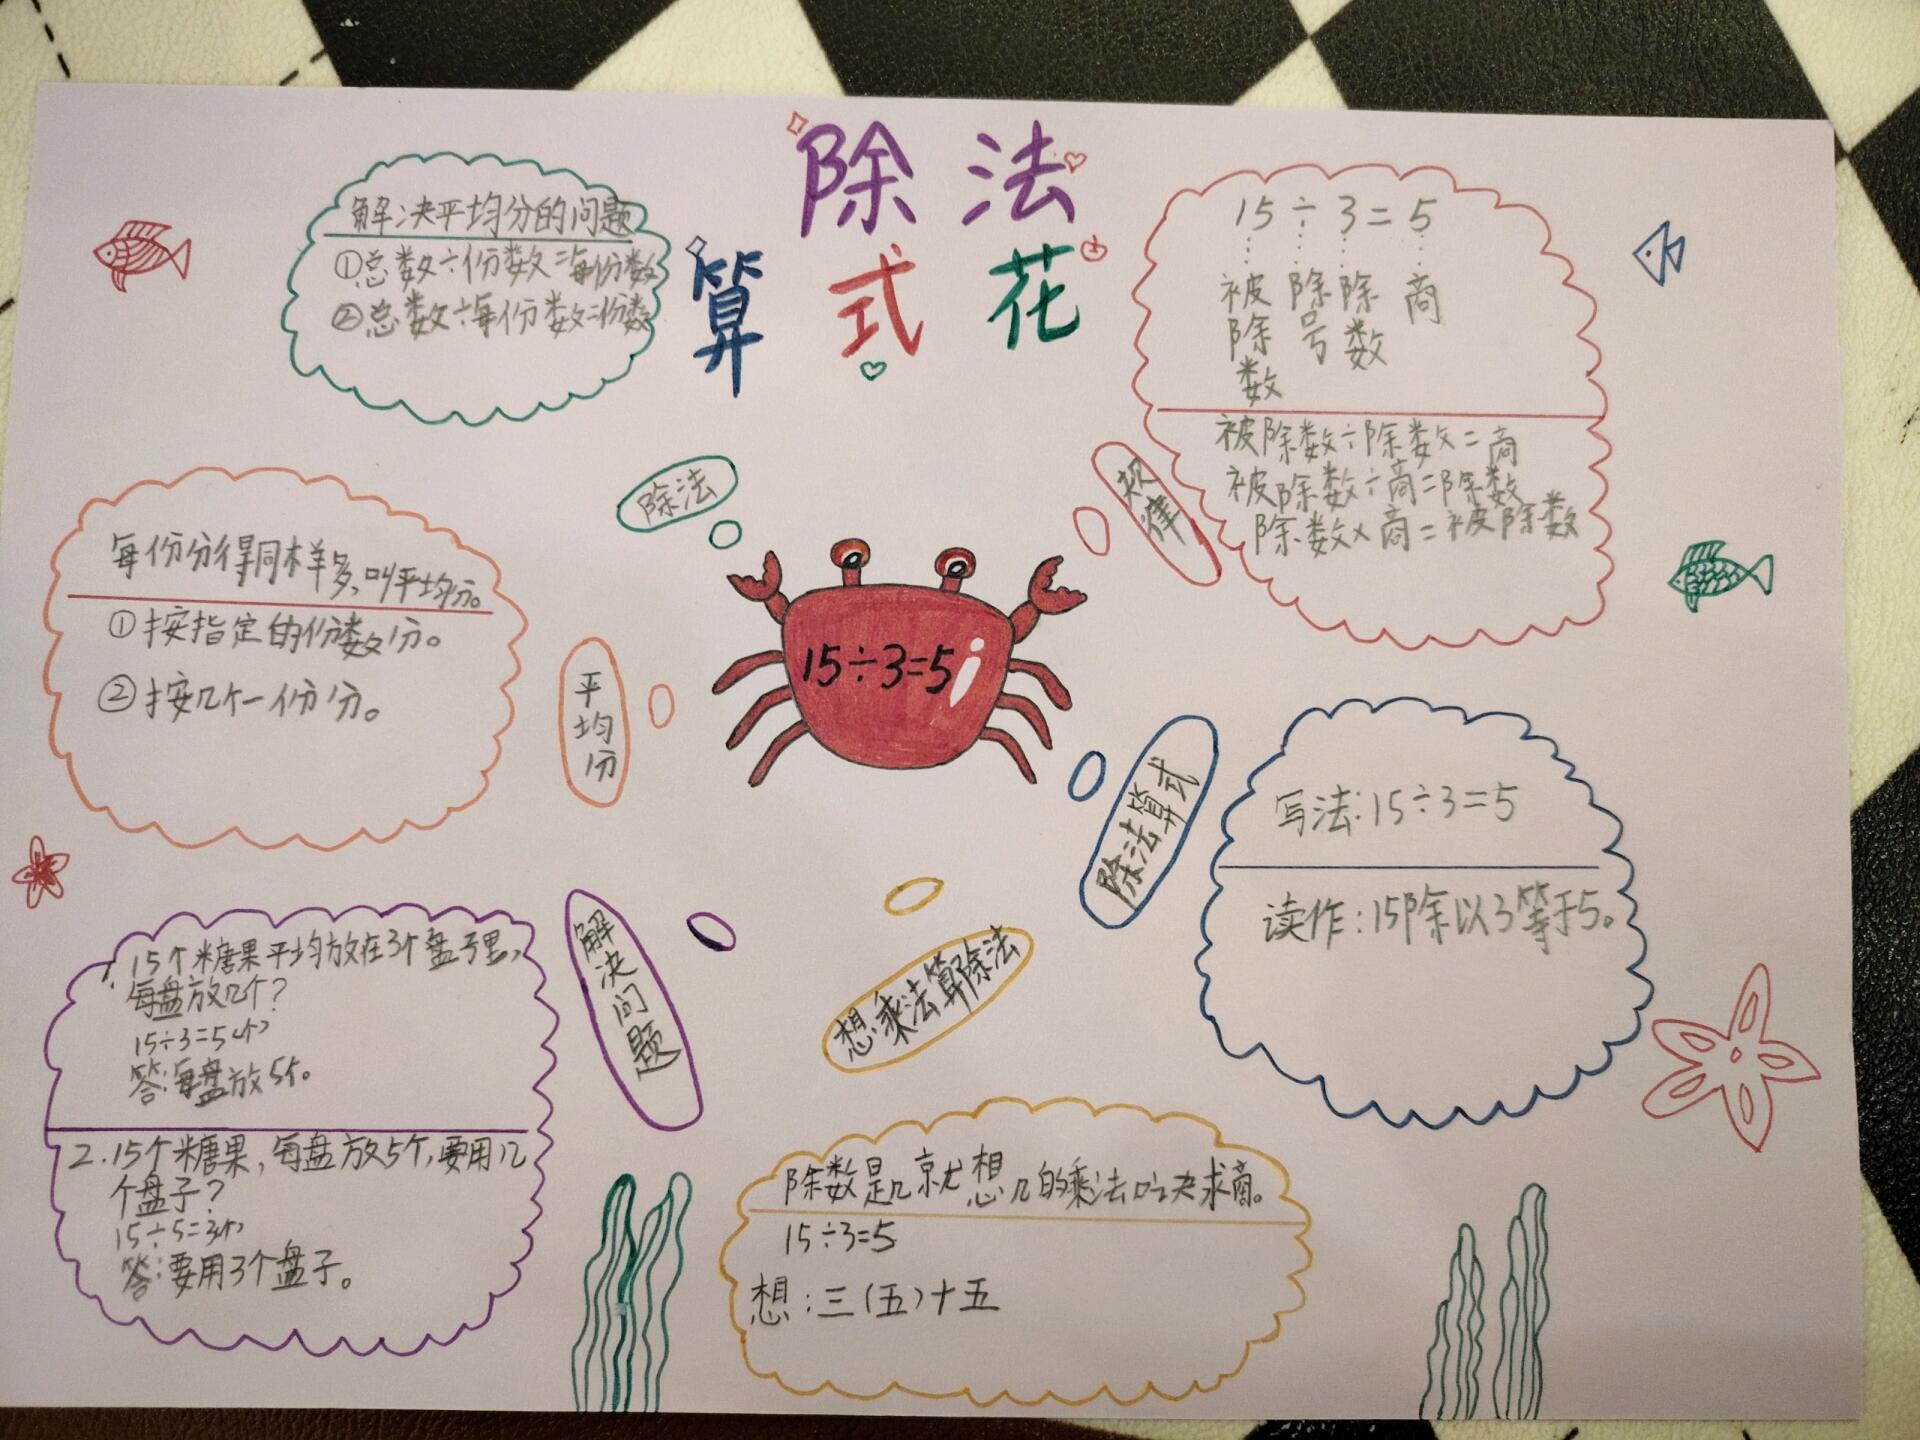 除法
算式花
解决平均分的问题
①总数÷份数=每份数
②总数÷每份数=份数
15÷3=5
被除数 除号 除数 商
被除数÷除数=商
被除数÷商=除数
除数×商=被除数
除法
规律
每份分得同样多,叫平均分。
①按指定的份数分。
②按几个一份分。
平均分
15÷3=5
除法算式
写法:15÷3=5
读作:15除以3等于5。
解决问题
15个糖果平均放在3个盘子里,
每盘放几个?
15÷3=5个
答:每盘放5个。
2.15个糖果,每盘放5个,要用几
个盘子?
15÷5=3个
答:要用3个盘子。
想乘法算除法
除数是几就想几的乘法口决求商。
15÷3=5
想:三(五)十五